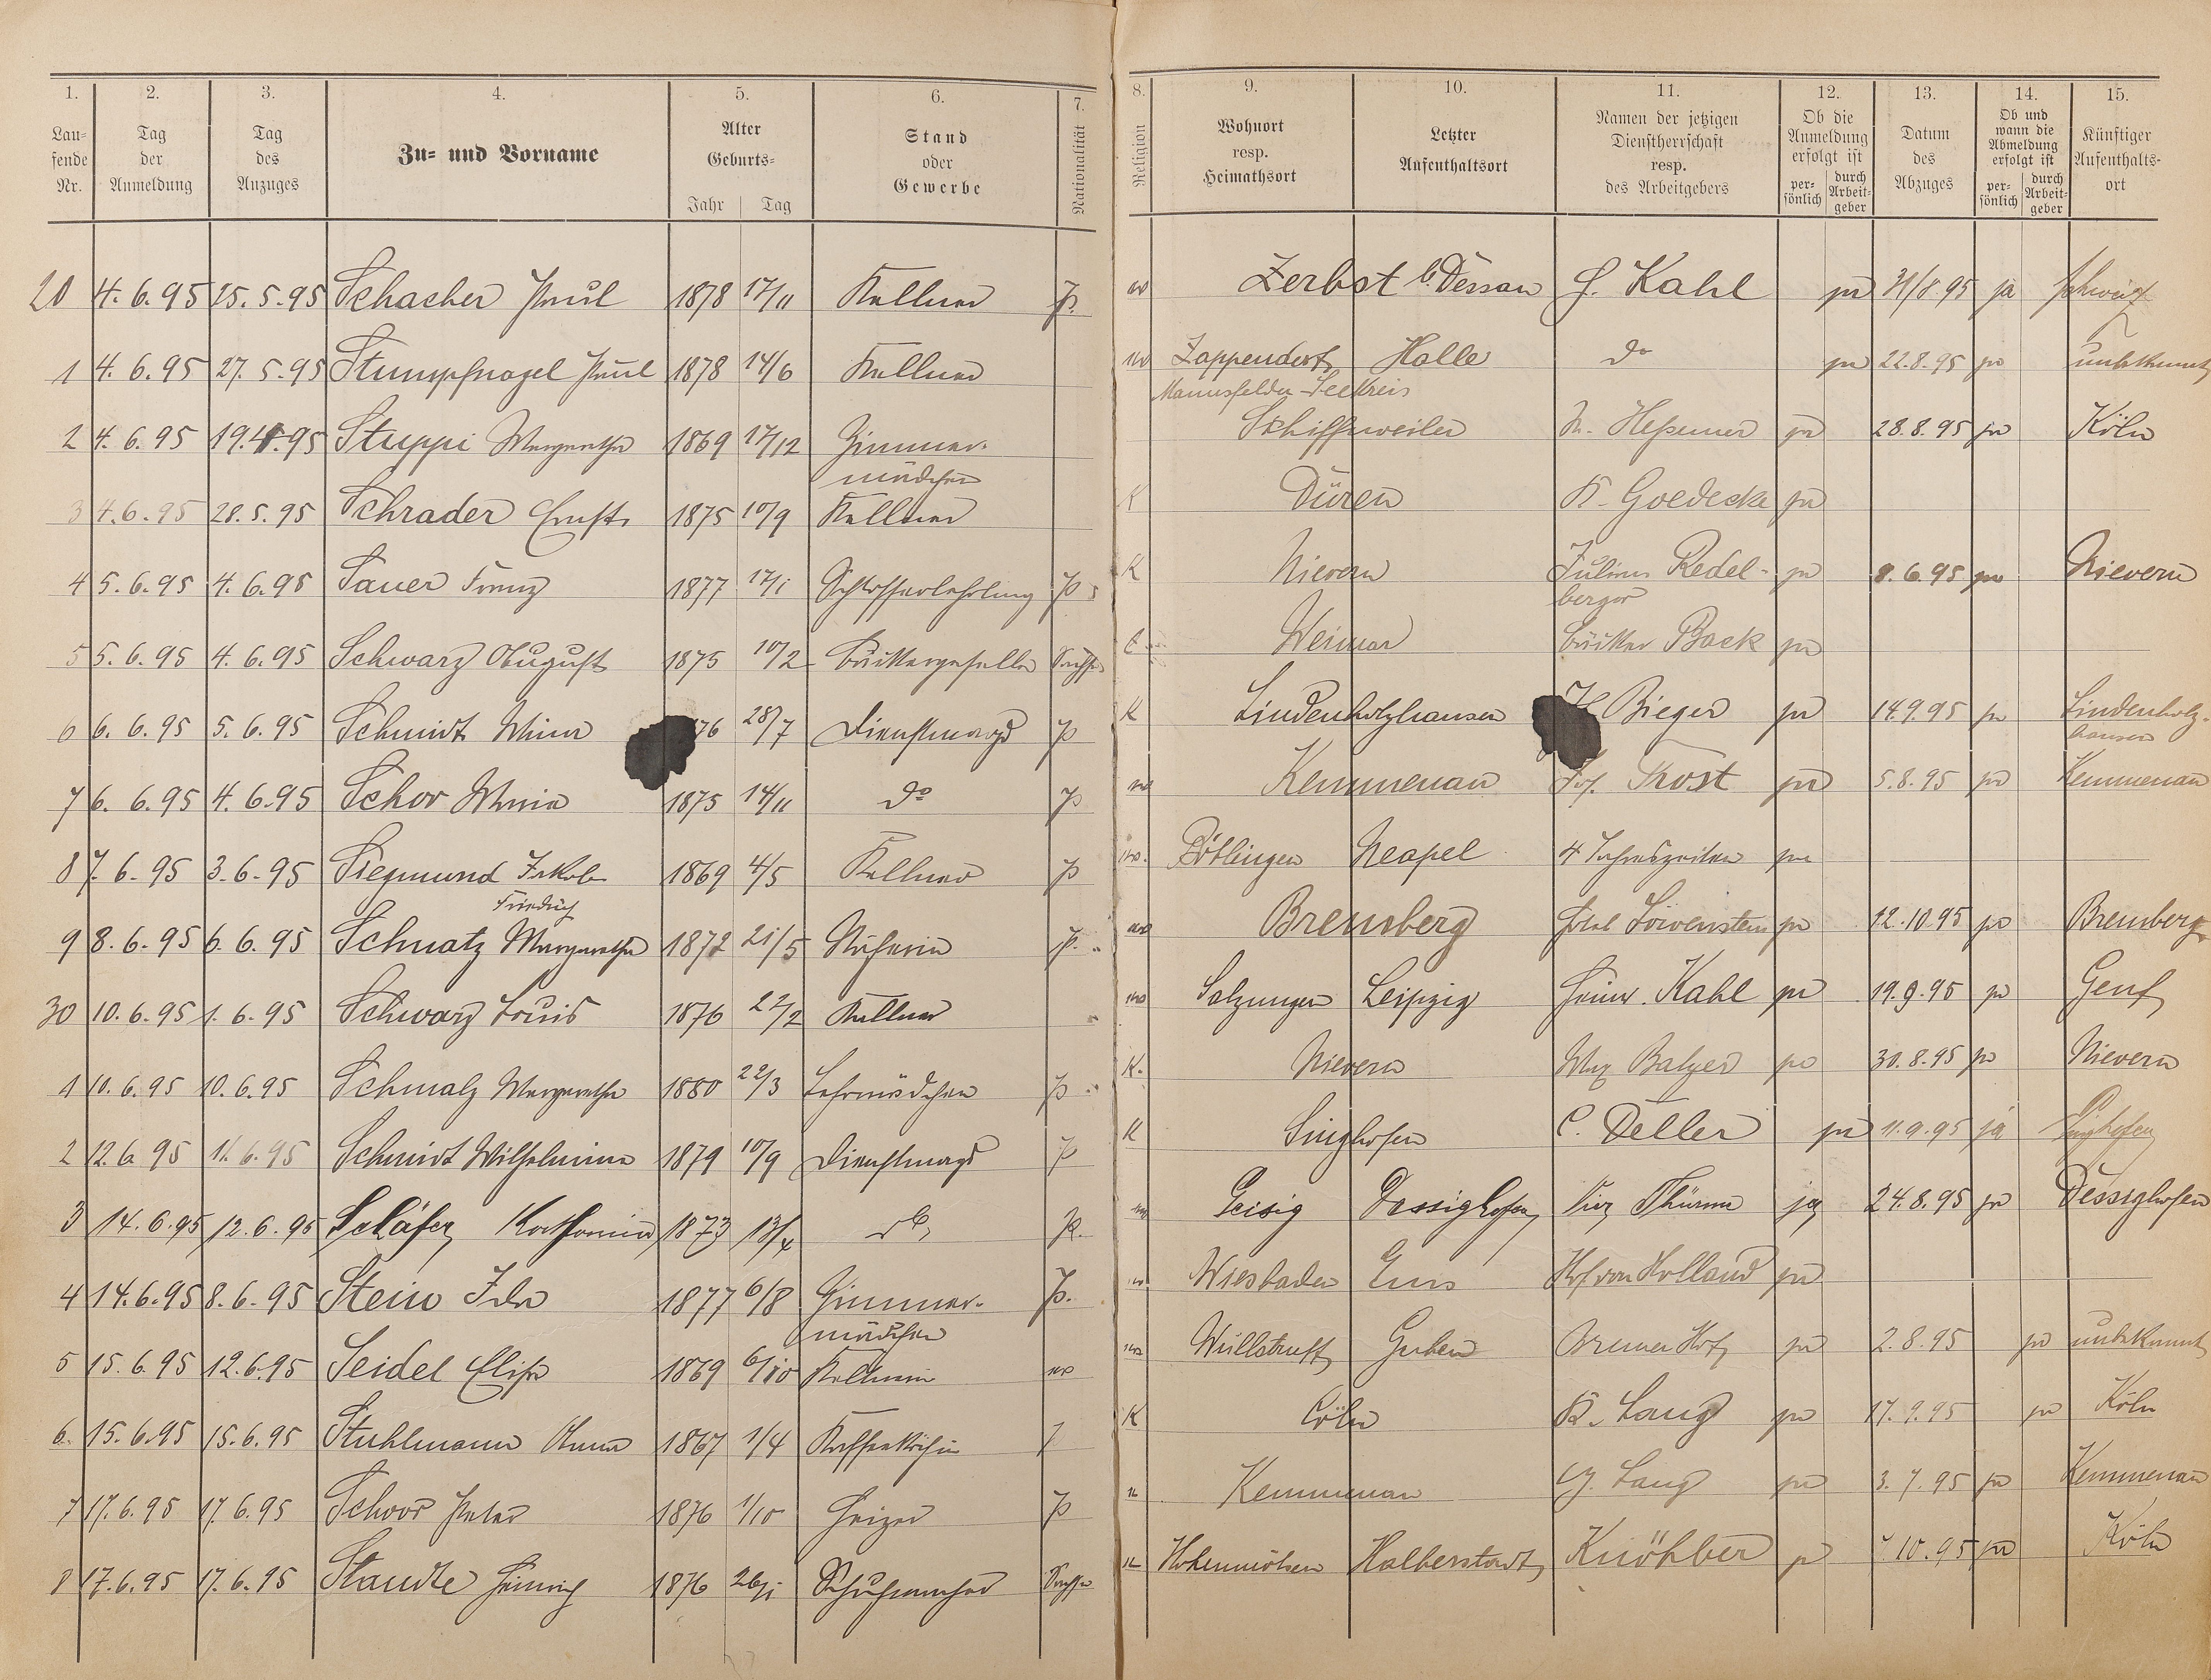 1. 2. 3. 4. 5. 6. 7. 8. 9. 10. 11. 12. 13. 14. 15.
Lau=
fende
Nr.
Tag
der
Anmeldung
Tag
des
Anzuges
Zu= und Vorname
Alter
Geburts=
Jahr Tag
Stand
oder
Gewerbe
Nationalität
Religion
Wohnort
resp.
Heimathsort
Letzter
Aufenthaltsort
Namen der jetzigen
Dienstherrschaft
resp.
des Arbeitgebers
Ob die
Anmeldung
erfolgt ist
per=
sönlich
durch
Arbeit=
geber
Datum
des
Abzuges
Ob und
wann die
Abmeldung
erfolgt ist
per=
sönlich
durch
Arbeit=
geber
Künftiger
Aufenthalts=
ort
20 4.6.95 25.5.95 Schacher Paul 1878 17/11 Kellner P. Zerbst b. Dessau H. Kahl ja 31/8.95 ja
1 4.6.95 27.5.95 Stumpfnagel Paul 1878 14/6 Kellner Zappendorf Halle do ja 22.8.95 ja unbekannt
Mannsfelder-Seekreis
2 4.6.95 19.4.95 Stuppi Margaretha 1869 17/12 Zimmer- Schiffweiler ja 28.8.95 ja Köln
mädchen
3 4.6.95 28.5.95 Schrader Ernst 1875 10/9 Kellner K Düren K. Goedecke ja
4 5.6.95 4.6.95 Sauer Franz 1877 17/1 Schlosserlehrling P K Nievern Julius Redel- ja 8.6.95 ja Nievern
berger
5 5.6.95 4.6.95 Schwarz August 1875 10/2 Bäckergeselle Weimar Bäcker Back ja
6 6.6.95 5.6.95 Schmidt Mina 76 28/7 Dienstmagd P K Lindenholzhausen Bieger ja 14.9.95 ja Lindenholz-
hausen
7 6.6.95 4.6.95 Schor Maria 1875 14/11 do P Kemmenau Trost ja 5.8.95 ja Kemmenau
8 7.6.95 3.6.95 Siegmund Jakob 1869 4/5 Kellner P Böblingen Neapel 4 Jahreszeiten ja
Friedrich
9 8.6.95 6.6.95 Schnatz Margaretha 1872 21/5 Näherin P. Bremberg Hotel Löwenstein ja 12.10.95 ja Bremberg
30 10.6.95 1.6.95 Schwarz Louis 1876 22/2 Kellner Salzungen Leipzig Heinr. Kahl ja 19.9.95 ja Genf
1 10.6.95 10.6.95 Schmalz Margaretha 1880 22/3 Lehrmädchen P K. Nievern Max Balzer ja 30.8.95 ja Nievern
2 12.6.95 11.6.95 Schmidt Wilhelmine 1879 10/9 Dienstmagd P K Singhofen C. Deller ja 11.9.95 ja Singhofen
3 14.6.95 12.6.95 Schäfer Katharina 1873 13/4 do P. Geisig Dessighofen Thürm ja 24.8.95 ja Dessighofen
4 14.6.95 8.6.95 Stein Ida 1877 6/8 Zimmer- P. Wiesbaden Ems Hof von Holland ja
mädchen
5 15.6.95 12.6.95 Seidel Elise 1869 6/10 Kellnerin Guben Bremer Hof ja 2.8.95 ja unbekannt
6. 15.6.95 15.6.95 Stuhlmann Anna 1867 1/4 Kaffeeköchin K Cöln K. Lang ja 17.9.95 ja Köln
7 17.6.95 17.6.95 Schoor Peter 1876 1/10 Heizer P Kemmenau Lang ja 3.7.95 ja Kemmenau
8 17.6.95 17.6.95 Staudte Heinrich 1876 26/1 Schuhmacher Hohenmölsen Halberstadt 10.95 ja Köln